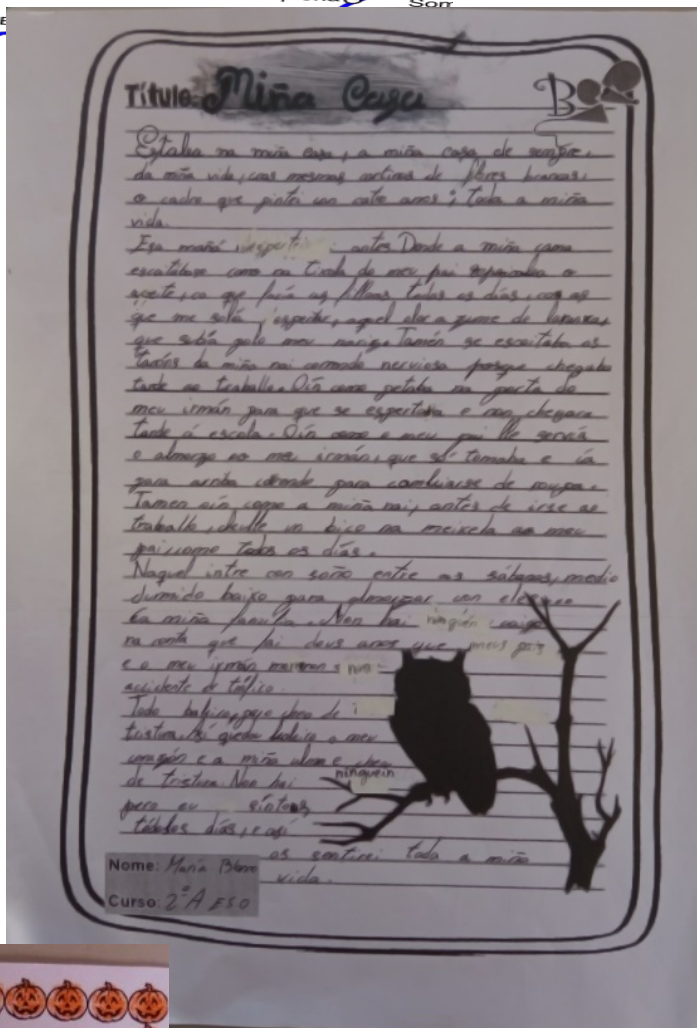 Título: Miña Casa
Estaba na miña casa, a miña casa de sempre,
da miña vida, coas mesmas cortinas de flores brancas,
o cadro que pintei con catro anos; toda a miña
vida.
Esa mañá antes Dende a miña cama
escoitábase como na tixola do meu pai o
aceite, co que facía as filloas todos os días, coas
que me solá espertar, aquel olor a zume de laranxa,
que subía polo meu nariz. Tamén se escoitaba os
tacóns da miña nai correndo nerviosa porque chegaba
tarde ao traballo. Oín como petaba na porta do
meu irmán para que se espertara e non chegara
tarde á escola. Oín como o meu pai lle servía
o almorzo ao meu irmán, que se tomaba e ía
para arriba correndo para cambiarse de roupa.
Tamen oín como a miña nai, antes de irse ao
traballo, doulle un bico na meixela ao meu
pai, como todos os días.
Naquel intre con soño entre as sábanas, medio
durmido baixo para almorzar con eles
a miña familia. Non hai ninguén, caigo
na conta que fai dous anos que meus pais
e o meu irmán morreron nun
accidente de tráfico.
Todo baleiro, pero cheo de
tristura. Así quedou baleiro o meu
corazón e a miña alma e chea
de tristura. Non hai ninguein
pero eu síntoos
tódolos días, e así
os sentirei toda a miña
vida.
Nome: María Blanco
Curso: 2ºA ESO